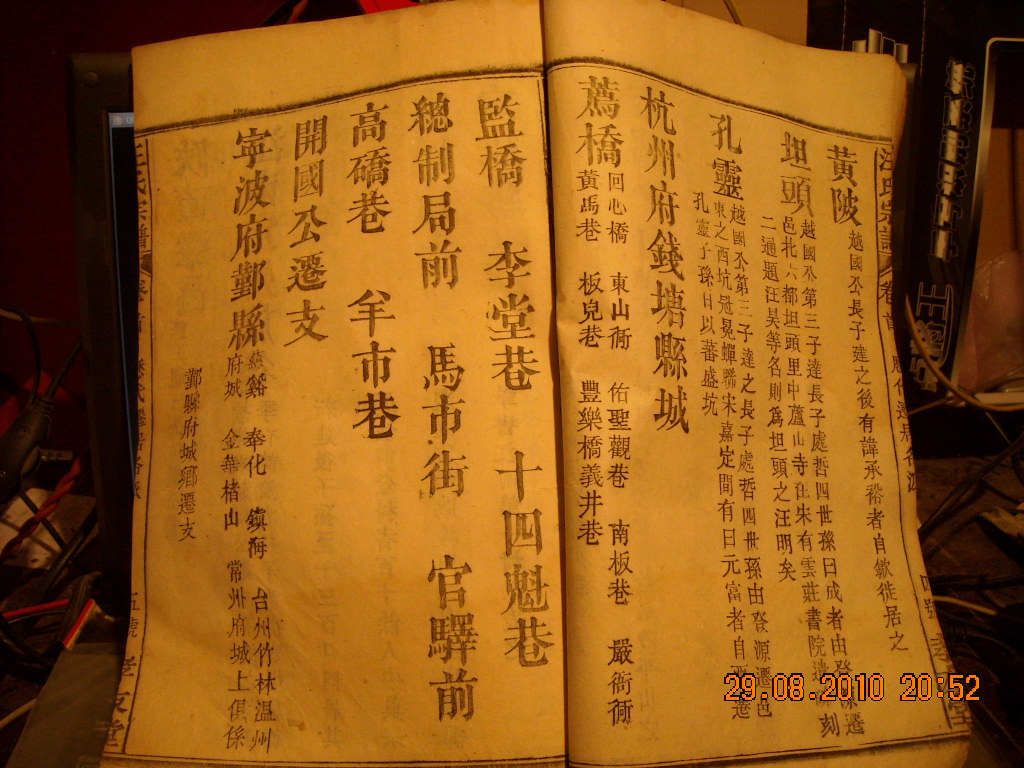 黃陂
越國公長子建之後有諱承裕者自歙徙居之
坦頭
越國公第三子達長子處哲四世孫曰成者由登源遷
邑北六都坦頭里中蘆山寺在宋有雲莊書院遺刻
二通題汪昊等名則爲坦頭之汪明矣
孔靈
越國公第三子達之長子處哲四世孫由登源遷邑
東之西坑冠冕蟬聯宋嘉定間有曰元富者自西遷
孔靈子孫日以蕃盛坑
杭州府錢塘縣城
薦橋
回心橋 東山衖 佑聖觀巷 南板巷 嚴衙衖
黃馬巷 板兒巷 豐樂橋義井巷
監橋 李堂巷 十四魁巷
總制局前 馬市街 官驛前
高礄巷 羊市巷
開國公遷支
寧波府鄞縣
慈谿 奉化 鎮海 台州竹林溫州
府城 金華楮山 常州府城上俱係
鄞縣府城鄉遷支
汪氏宗譜 卷首
五號
29.08.2010 20:52